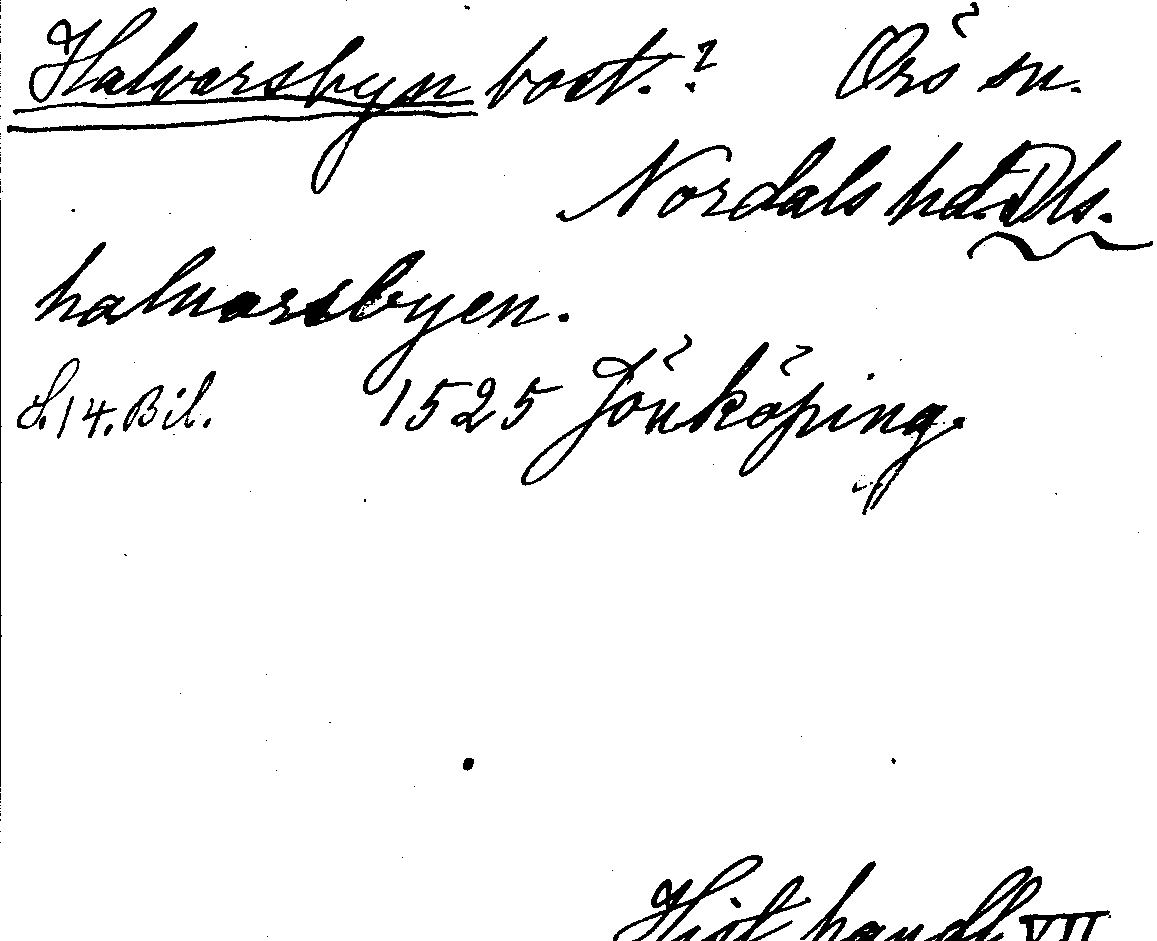 Halvorsbyn bost.? Örs sn.
Nordals hd. Dls.
haluorsbyen.
S. 14. Bil. 1525 Jönköping.
Hist handl VII